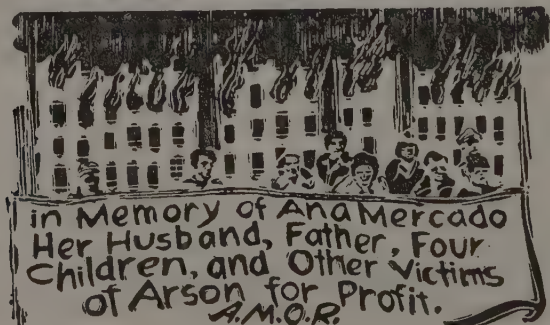 in Memory of Ana Mercado
Her Husband, Father, Four
Children, and Other Victims
of Arson for Profit.
A.M.O.R.